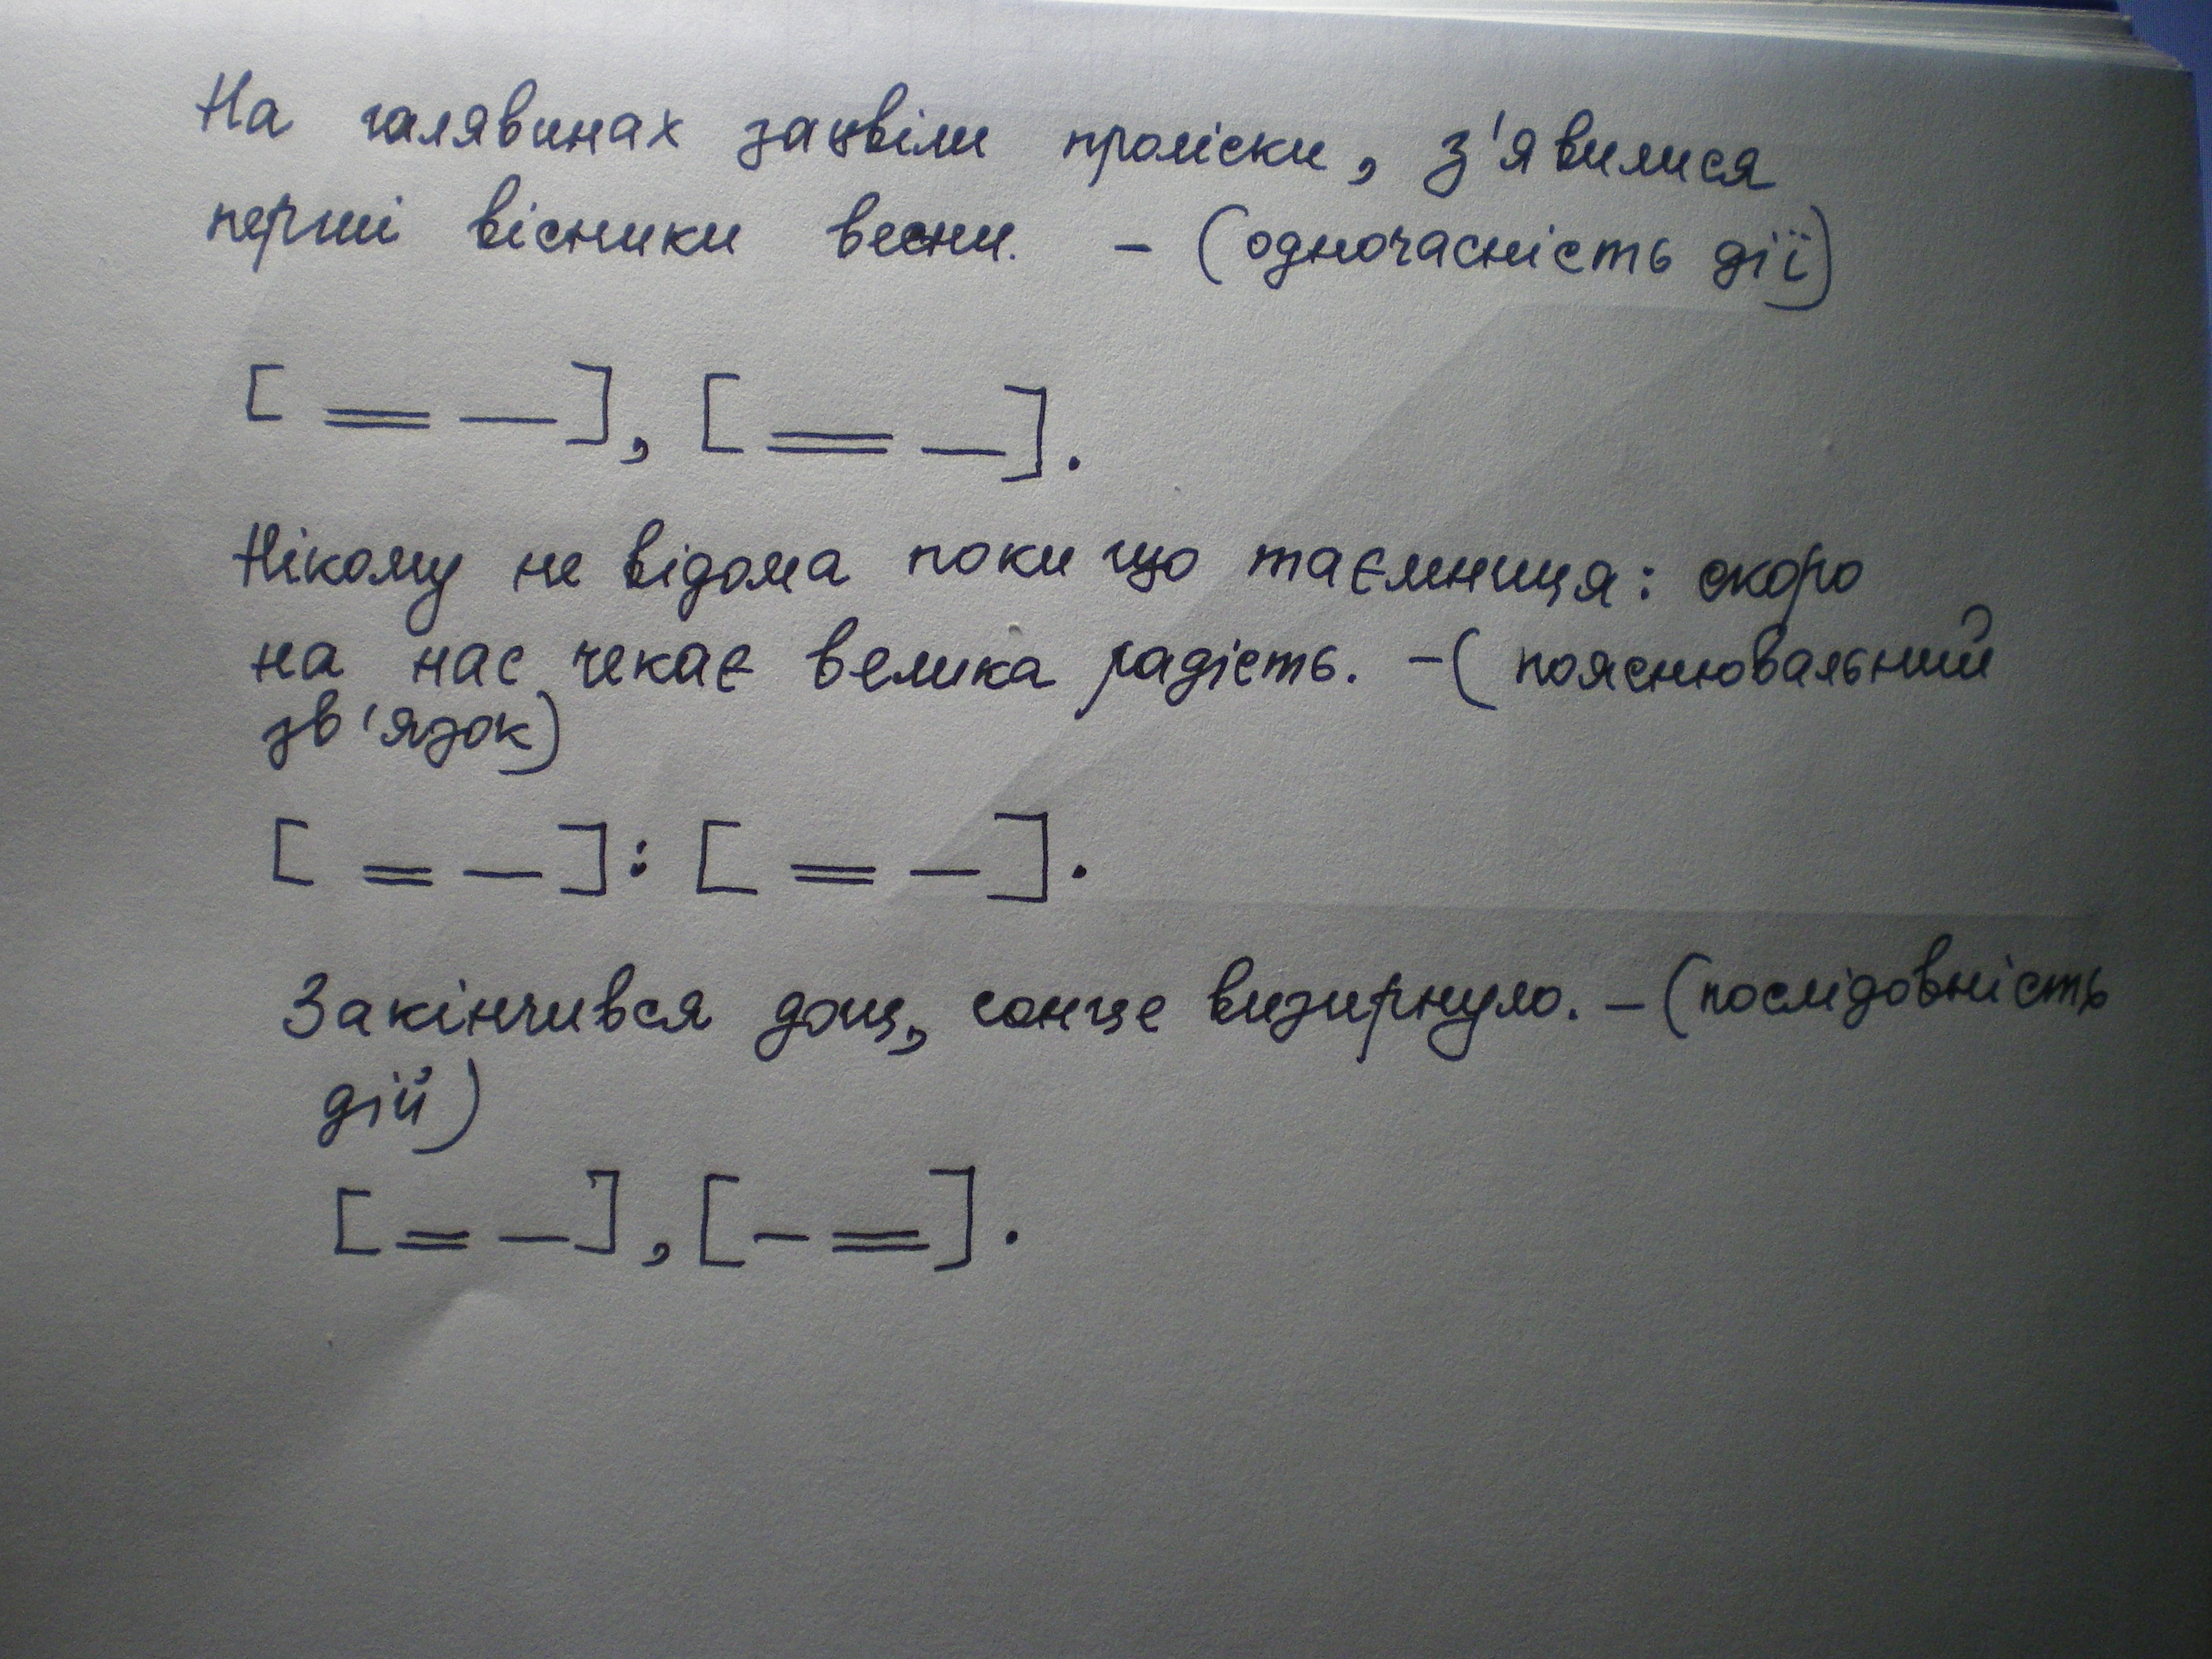 На галявинах зацвіли проліски, з'явилися
перші вісники весни. – (одночасність дії)
[ = — ], [ = — ].
Нікому не відома поки що таємниця: скоро
на нас чекає велика радість. – (пояснювальний
зв'язок)
[ = — ]: [ = — ].
Закінчився дощ, сонце визирнуло. – (послідовність
дій)
[ = — ], [ — = ].